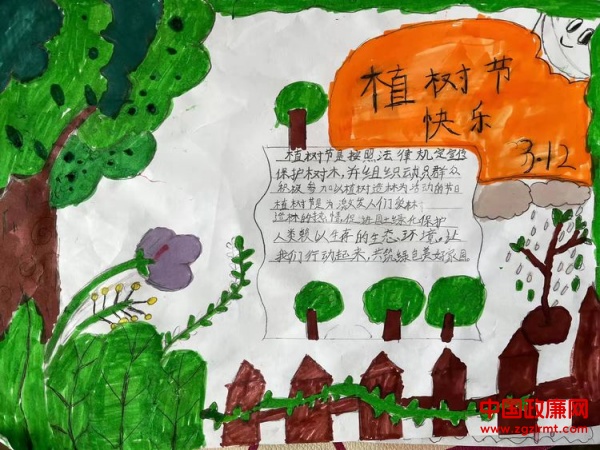 植树节
快乐
3.12
植树节是按照法律规定宣传
保护树木,并组织动员群众
积极参加以植树造林为活动的节日
植树节是激发人们爱林
造林的热情,促进国土绿化保护
人类赖以生存的生态环境。让
我们行动起来,共筑绿色美好家园
中国政廉网
www.zgzlrmt.com